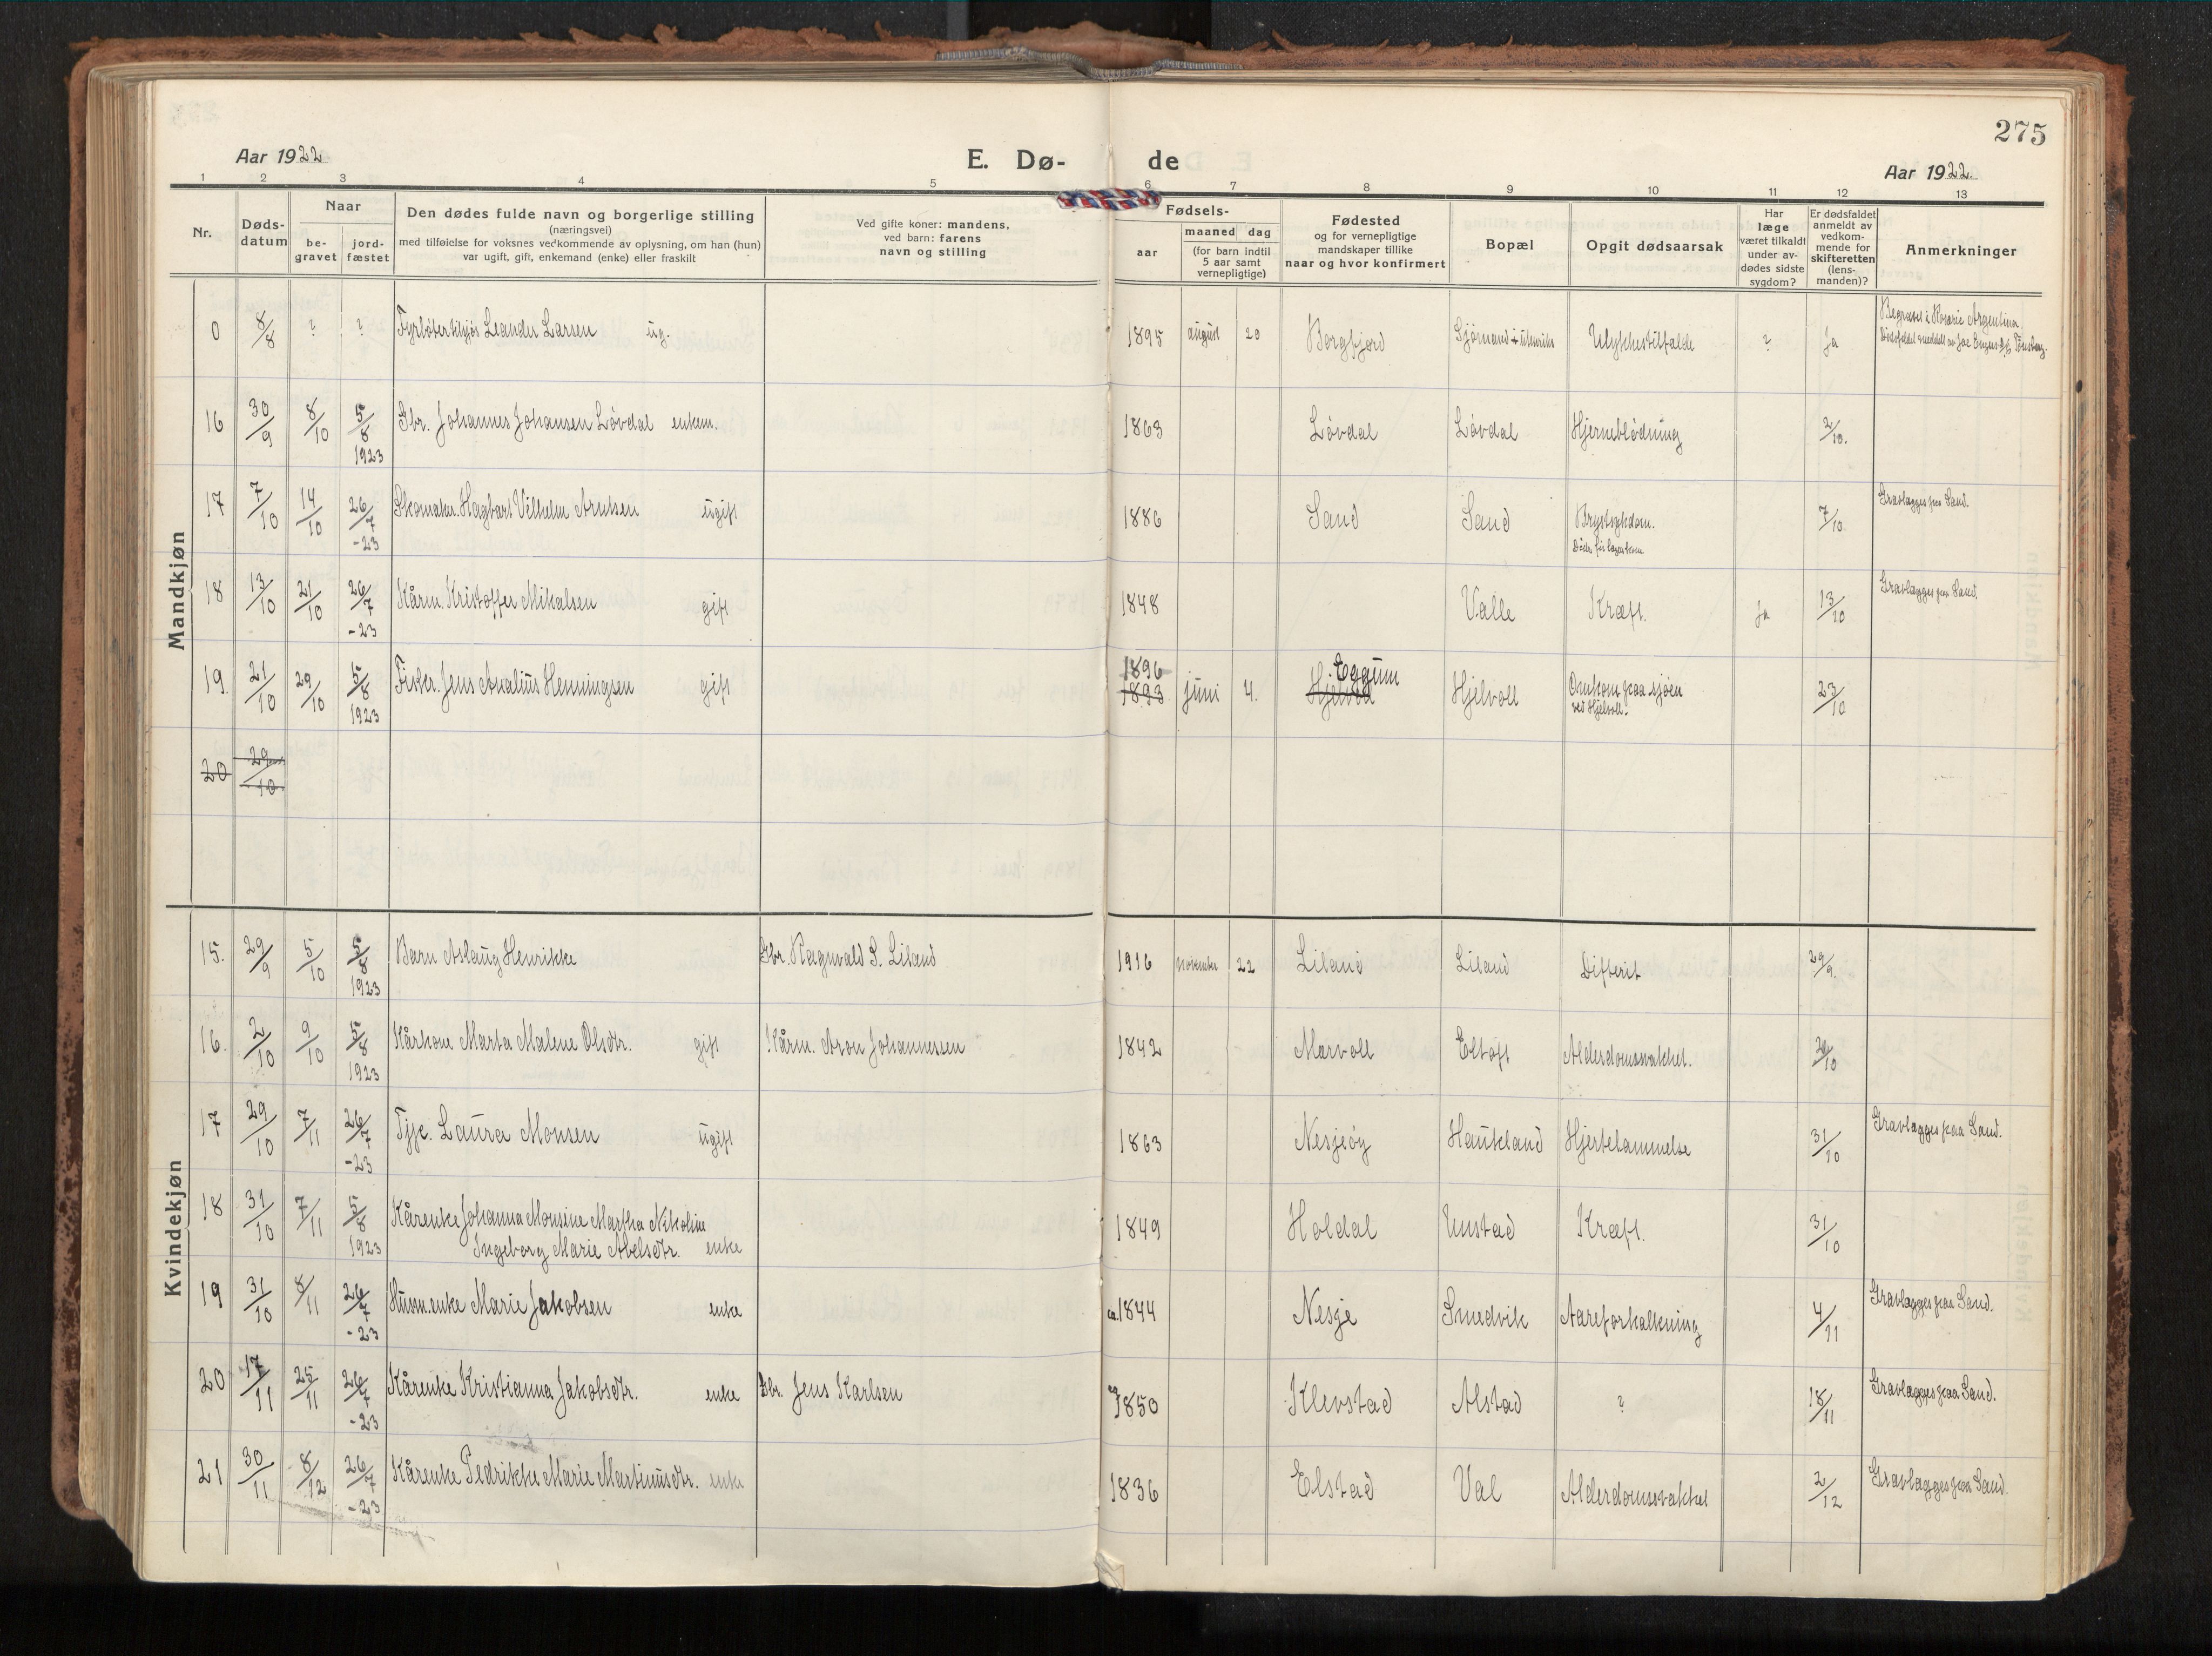 275
Aar 1922
E. Dø- de
Aar 1922.
1 2 3 4 5 6 7 8 9 10 11 12 13
Nr.
Døds-
datum
Naar
be-
gravet
jord-
fæstet
Den dødes fulde navn og borgerlige stilling
(næringsvei)
med tilføielse for voksnes vedkommende av oplysning, om han (hun)
var ugift, gift, enkemand (enke) eller fraskilt
Ved gifte koner: mandens,
ved barn: farens
navn og stilling
Fødsels-
aar
maaned dag
(for barn indtil
5 aar samt
vernepligtige)
Fødested
og for vernepligtige
mandskaper tillike
naar og hvor konfirmert
Bopæl
Opgit dødsaarsak
Har
læge
været tilkaldt
under av-
dødes sidste
sygdom?
Er dødsfaldet
anmeldt av
vedkom-
mende for
skifteretten
(lens-
manden)?
Anmerkninger
Mandkjøn
0 8/8 ? ? Leander Larsen ug. 1895 august 20 Borgfjord Sjømand i utenriks Ulykkestilfælde ? Ja Begravet i Rosario Argentina.
16 30/9 8/10 5/8 1923 Gbr. Johannes Johansen Løvdal enkem. 1863 Løvdal Løvdal Hjerneblødning 2/10.
17 7/10 14/10 26/7 -23 Skomaker Hagbart Vilhelm Arntsen ugift 1886 Sand Sand Brystsykdom. 7/10 Gravlægges paa Sand.
Døde før lægen kom
18 13/10 21/10 26/7 -23 Kårm. Kristoffer Mikalsen gift 1848 Valle Kræft. Ja 13/10 Gravlægges paa Sand.
19. 21/10 29/10 5/8 1923 Fisker Jens Analius Henningsen gift 1896 1893 juni 4. Eggum Hjelvol Hjelvoll Omkom paa sjøen 23/10
ved Hjelvoll.
20 29/10
Kvindekjøn
15. 29/9 5/10 5/8 1923 Barn Aslaug Henrikke Gbr. Ragnvald S. Liland 1916 november 22 Liland Liland Difterit 29/9.
16. 2/10 9/10 5/8 1923 Kårkone Marta Malene Olsdtr. gift Kårm. Aron Johannessen 1842 Mærvoll Eltoft Alderdomssvakhet. 2/10
17 29/10 7/11 26/7 -23 Tjje. Laura Monsen ugift 1863 Nesjeøy Haukland Hjertelammelse 31/10 Gravlægges paa Sand.
18 31/10 7/11 5/8 1923 Kårenke Johanna Monsine Martha Nikoline 1849 Holdal Unstad Kræft. 31/10
Ingeborg Marie Abelsdtr. enke
19 31/10 8/11 26/7 -23 Husm.enke Marie Jakobsen enke ca. 1844 Nesje Smedvik Aareforkalkning 4/11 Gravlægges paa Sand.
20 17/11 25/11 26/7 -23 Kårenke Kristianna Jakobsdtr. enke Gbr. Jens Karlsen 1850 Klevstad Alstad ? 18/11 Gravlægges paa Sand.
21 30/11 8/12 26/7 -23 Kårenke Pedrikke Marie Martinusdtr. enke 1836 Elstad Val Alderdomssvakhet 2/12 Gravlægges paa Sand.